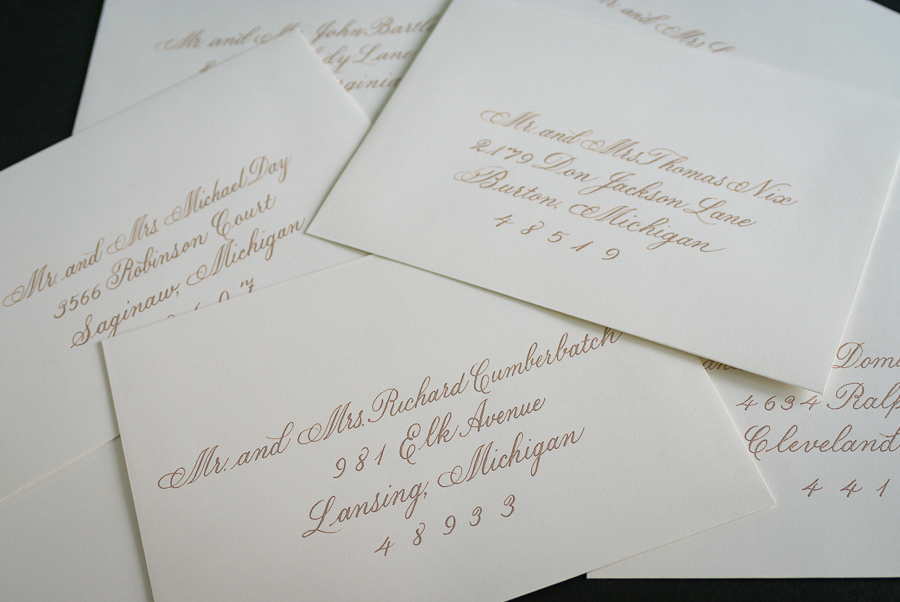 Mr. and
John Bartl
dy Lane
rginia
Mr. and Mrs
Mr. and Mrs Thomas Nix
2179 Don Jackson Lane
Burton, Michigan
48519
Mr. and Mrs. Michael Day
3566 Robinson Court
Saginaw, Michigan
Mr. and Mrs. Richard Cumberbatch
981 Elk Avenue
Lansing, Michigan
48933
and Domi
4634 Ralp
Cleveland
441